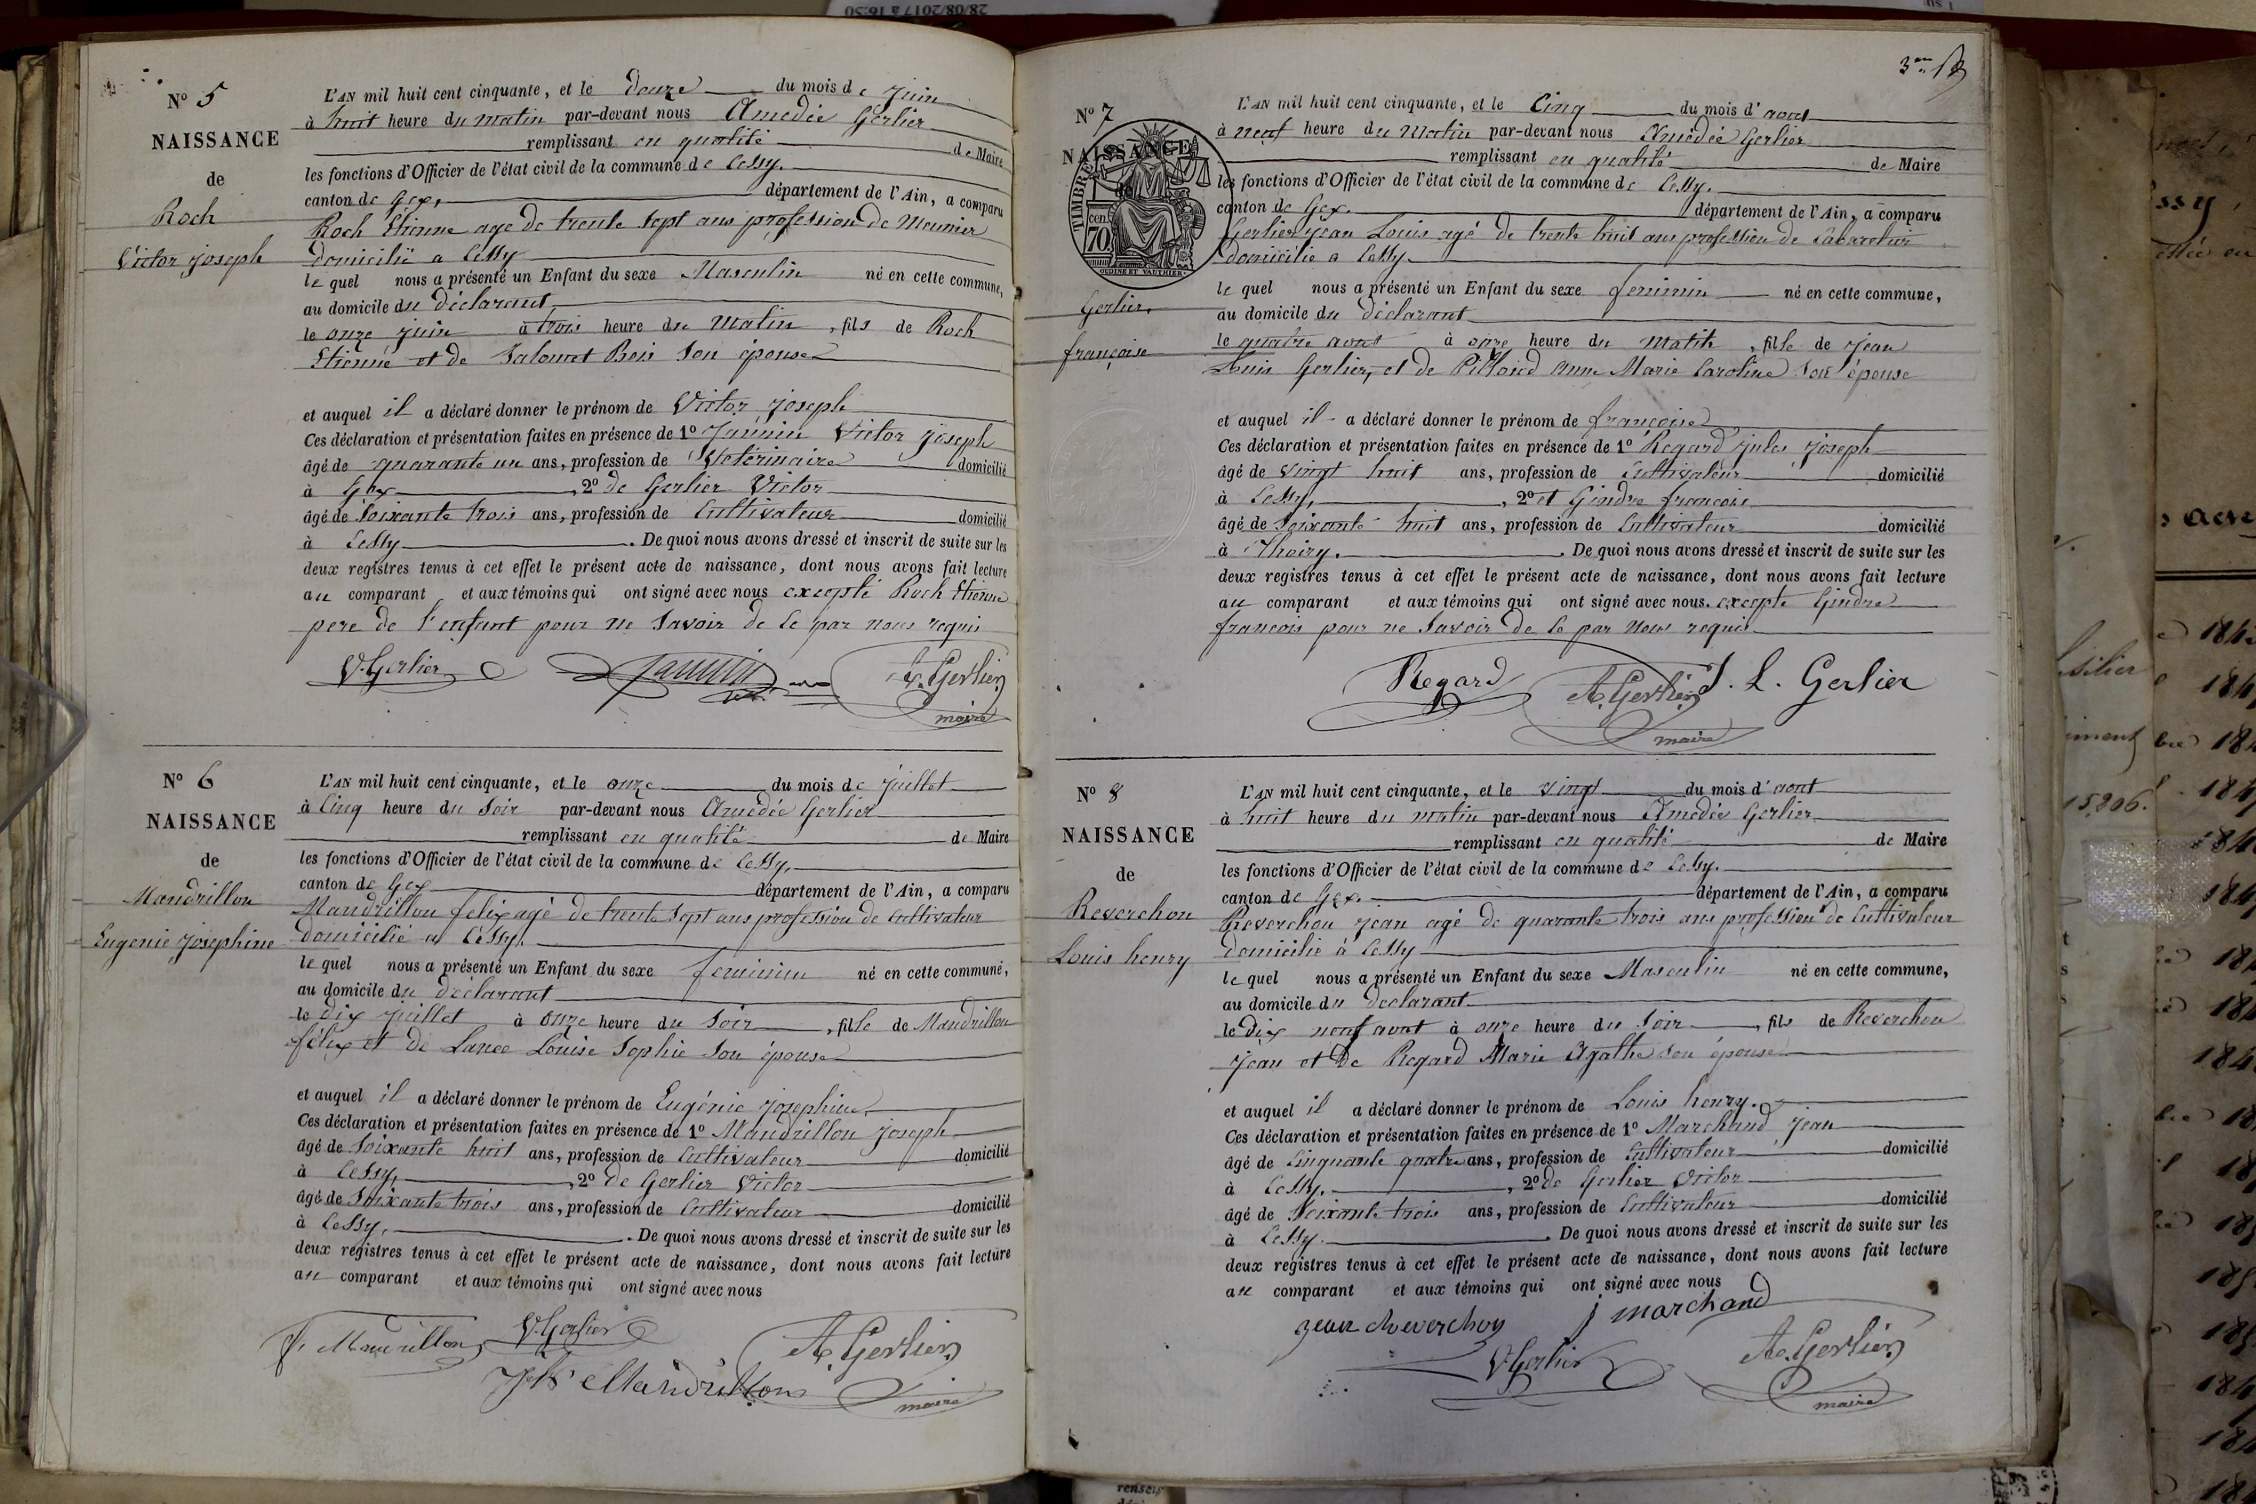 28/08/2017 à 16:50
N° 5
NAISSANCE
de
Roch
Victor joseph
L'AN mil huit cent cinquante, et le douze du mois de juin
à huit heure du matin par-devant nous Amédée Gerlier
remplissant en qualité de Maire
les fonctions d'Officier de l'état civil de la commune de Cessy.
canton de Gex, département de l'Ain, a comparu
Roch Etienne age de trente sept ans profession de Meunier
domicilié a Cessy
le quel nous a présenté un Enfant du sexe Masculin né en cette commune,
au domicile du déclarant
le onze juin à trois heure du Matin, fils de Roch
Etienne et de Salomet Bois son épouse
et auquel il a déclaré donner le prénom de Victor joseph
Ces déclaration et présentation faites en présence de 1° Victor joseph
âgé de quarante un ans, profession de Vétérinaire domicilié
à Gex, 2° de Gerlier Victor
âgé de Soixante trois ans, profession de Cultivateur domicilié
à Cessy. De quoi nous avons dressé et inscrit de suite sur les
deux registres tenus à cet effet le présent acte de naissance, dont nous avons fait lecture
au comparant et aux témoins qui ont signé avec nous excepté Roch Etienne
pere de l'enfant pour ne Savoir de Ce par nous requis
V. Gerlier A. Gerlier
maire
N° 6
NAISSANCE
de
Mandrillon
Eugenie josephine
L'AN mil huit cent cinquante, et le onze du mois de juillet
à Cinq heure du Soir par-devant nous Amédée Gerlier
remplissant en qualité de Maire
les fonctions d'Officier de l'état civil de la commune de Cessy,
canton de Gex département de l'Ain, a comparu
Mandrillon felix agé de trente Sept ans profession de Cultivateur
domicilié a Cessy.
le quel nous a présenté un Enfant du sexe feminin né en cette commune,
au domicile du déclarant
le dix juillet à onze heure du Soir, fille de Mandrillon
félix et de Lance Louise Sophie Son épouse
et auquel il a déclaré donner le prénom de Eugénie josephine,
Ces déclaration et présentation faites en présence de 1° Mandrillon joseph
âgé de Soixante huit ans, profession de Cultivateur domicilié
à Cessy, 2° de Gerlier Victor
âgé de Soixante trois ans, profession de Cultivateur domicilié
à Cessy. De quoi nous avons dressé et inscrit de suite sur les
deux registres tenus à cet effet le présent acte de naissance, dont nous avons fait lecture
au comparant et aux témoins qui ont signé avec nous
F. Mandrillon V. Gerlier A. Gerlier
Jph Mandrillon maire
3me
N° 7
NAISSANCE
de
TIMBRE
70 cen
OUDINE ET VAUTHIER
Gerlier,
françoise
L'AN mil huit cent cinquante, et le Cinq du mois d'aout
à neuf heure du Matin par-devant nous Amédée Gerlier
remplissant en qualité de Maire
les fonctions d'Officier de l'état civil de la commune de Cessy.
canton de Gex. département de l'Ain, a comparu
Gerlier jean Louis agé de trente huit ans profession de Cabaretier
domicilié a Cessy.
le quel nous a présenté un Enfant du sexe feminin né en cette commune,
au domicile du déclarant
le quatre aout à onze heure du Matin, fille de jean
Louis Gerlier, et de Anne Marie Caroline Son épouse
et auquel il a déclaré donner le prénom de françoise
Ces déclaration et présentation faites en présence de 1° Regard jules joseph
âgé de Vingt huit ans, profession de Cultivateur domicilié
à Cessy, 2° et Gindre francois
âgé de Soixante huit ans, profession de Cultivateur domicilié
à Thoiry. De quoi nous avons dressé et inscrit de suite sur les
deux registres tenus à cet effet le présent acte de naissance, dont nous avons fait lecture
au comparant et aux témoins qui ont signé avec nous. excepte Gindre
francois pour ne Savoir de Ce par Nous requis
Regard A. Gerlier J. L. Gerlier
maire
N° 8
NAISSANCE
de
Reverchon
Louis henry
L'AN mil huit cent cinquante, et le vingt du mois d'aout
à huit heure du matin par-devant nous Amédée Gerlier
remplissant en qualité de Maire
les fonctions d'Officier de l'état civil de la commune de Cessy.
canton de Gex. département de l'Ain, a comparu
Reverchon jean agé de quarante trois ans profession de Cultivateur
domicilié à Cessy
le quel nous a présenté un Enfant du sexe Masculin né en cette commune,
au domicile du declarant
le dix neuf aout à onze heure du Soir, fils de Reverchon
jean et de Regard Marie Agathe son épouse
et auquel il a déclaré donner le prénom de Louis henry.
Ces déclaration et présentation faites en présence de 1° Marchand jean
âgé de Cinquante quatre ans, profession de Cultivateur domicilié
à Cessy. 2° de Gerlier Victor
âgé de Soixante trois ans, profession de Cultivateur domicilié
à Cessy. De quoi nous avons dressé et inscrit de suite sur les
deux registres tenus à cet effet le présent acte de naissance, dont nous avons fait lecture
au comparant et aux témoins qui ont signé avec nous
jean Reverchon j marchand
V. Gerlier A. Gerlier
maire